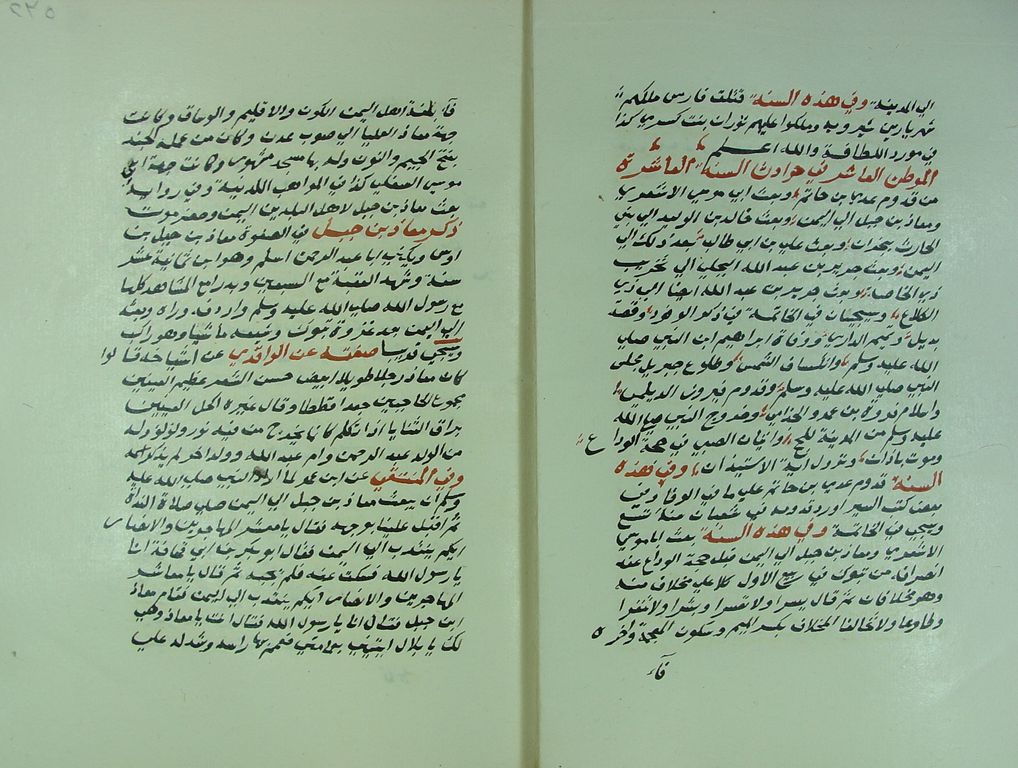 الي المدينة وفي هذه السنة قتلت فارس ملكهم
شهريار بن شيرويه وملكوا عليهم بوران بنت كسري كذا
في مورد اللطافة والله اعلم
الموطن العاشر في حوادث السنة العاشرة
من قدوم عدي بن حاتم وبعث ابي موسي الاشعري
ومعاذ بن جبل الي اليمن وبعث خالد بن الوليد الي بني
الحارث بنجران وبعث علي بن ابي طالب بعد ذلك الي
اليمن وبعث جرير بن عبد الله البجلي الي تخريب
ذي الخلصة وبعث جرير بن عبد الله ايضا الي ذي
الكلاع وسيجيئان في الخاتمة في ذكر الوفود وقصة
بديل وتميم الداري ووفاة ابراهيم ابن النبي صلي
الله عليه وسلم وانكساف الشمس وطلوع جبريل مجلس
النبي صلي الله عليه وسلم وقدوم فيروز الديلمي
واسلام فروة بن عمرو الجذامي وخروج النبي صلي الله
عليه وسلم من المدينة للحج واتيان الصبي في حجة الوداع
وموت باذان ونزول اية الاستيذان وفي هذه
السنة قدوم عدي بن حاتم علي ما في الوفا وفي
بعض كتب السير اورد قدومه في شعبان سنة تسع
ويجي في الخاتمة وفي هذه السنة بعث ابا موسي
الاشعري ومعاذ بن جبل الي اليمن قبل حجة الوداع عند
انصرافه من تبوك في ربيع الاول كلا علي مخلاف منه
وهو مخلافان ثم قال يسرا ولا تعسرا وبشرا ولا تنفرا
وتطاوعا ولا تخالفا المخلاف بكسر الميم وسكون المعجمة واخره
فاء
فاء بلغة اهل اليمن الكون والاقليم والرستاق وكانت
جهة معاذ العليا الي صوب عدن وكان من عمله الجند
بفتح الجيم والنون وله بها مسجد مشهور وكانت جهة ابي
موسي السفلي كذا في المواهب اللدنية وفي رواية
بعث معاذ بن جبل لاهل البلدين اليمن وحضرموت
ذكر معاذ بن جبل في الصفوة معاذ بن جبل بن
اوس ويكني ابا عبد الرحمن اسلم وهو ابن ثمانية عشر
سنة وشهد العقبة مع السبعين وبدرا مع المشاهد كلها
مع رسول الله صلي الله عليه وسلم واردفه وراه وبعثه
الي اليمن بعد غزوة تبوك وشيعه ماشيا وهو راكب
ويجي قريبا صفته عن الواقدي عن اشياخه قالوا
كان معاذ رجلا طويلا ابيض حسن الشعر عظيم العينين
مجموع الحاجبين جعدا قططا وقال غيره اكحل العينين
براق الثنايا اذا تكلم كانما يخرج من فيه نور ولؤلؤ وله
من الولد عبد الرحمن وام عبد الله وولد اخر لم يذكر اسمه
وفي المنتقي عن ابن عمر لما اراد النبي صلي الله عليه
وسلم ان يبعث معاذ بن جبل الي اليمن صلي صلاة الغداة
ثم اقبل علينا بوجهه فقال يا معشر المهاجرين والانصار
ايكم ينتدب الي اليمن فقال ابو بكر بن ابي قحافة انا
يا رسول الله فسكت عنه فلم يجبه ثم قال يا معاشر
المهاجرين والانصار ايكم ينتدب الي اليمن فقام معاذ
ابن جبل فقال انا يا رسول الله فقال انت يا معاذ وهي
لك يا بلال ايتيني بعمامتي فعمم بها راسه وشد له علي